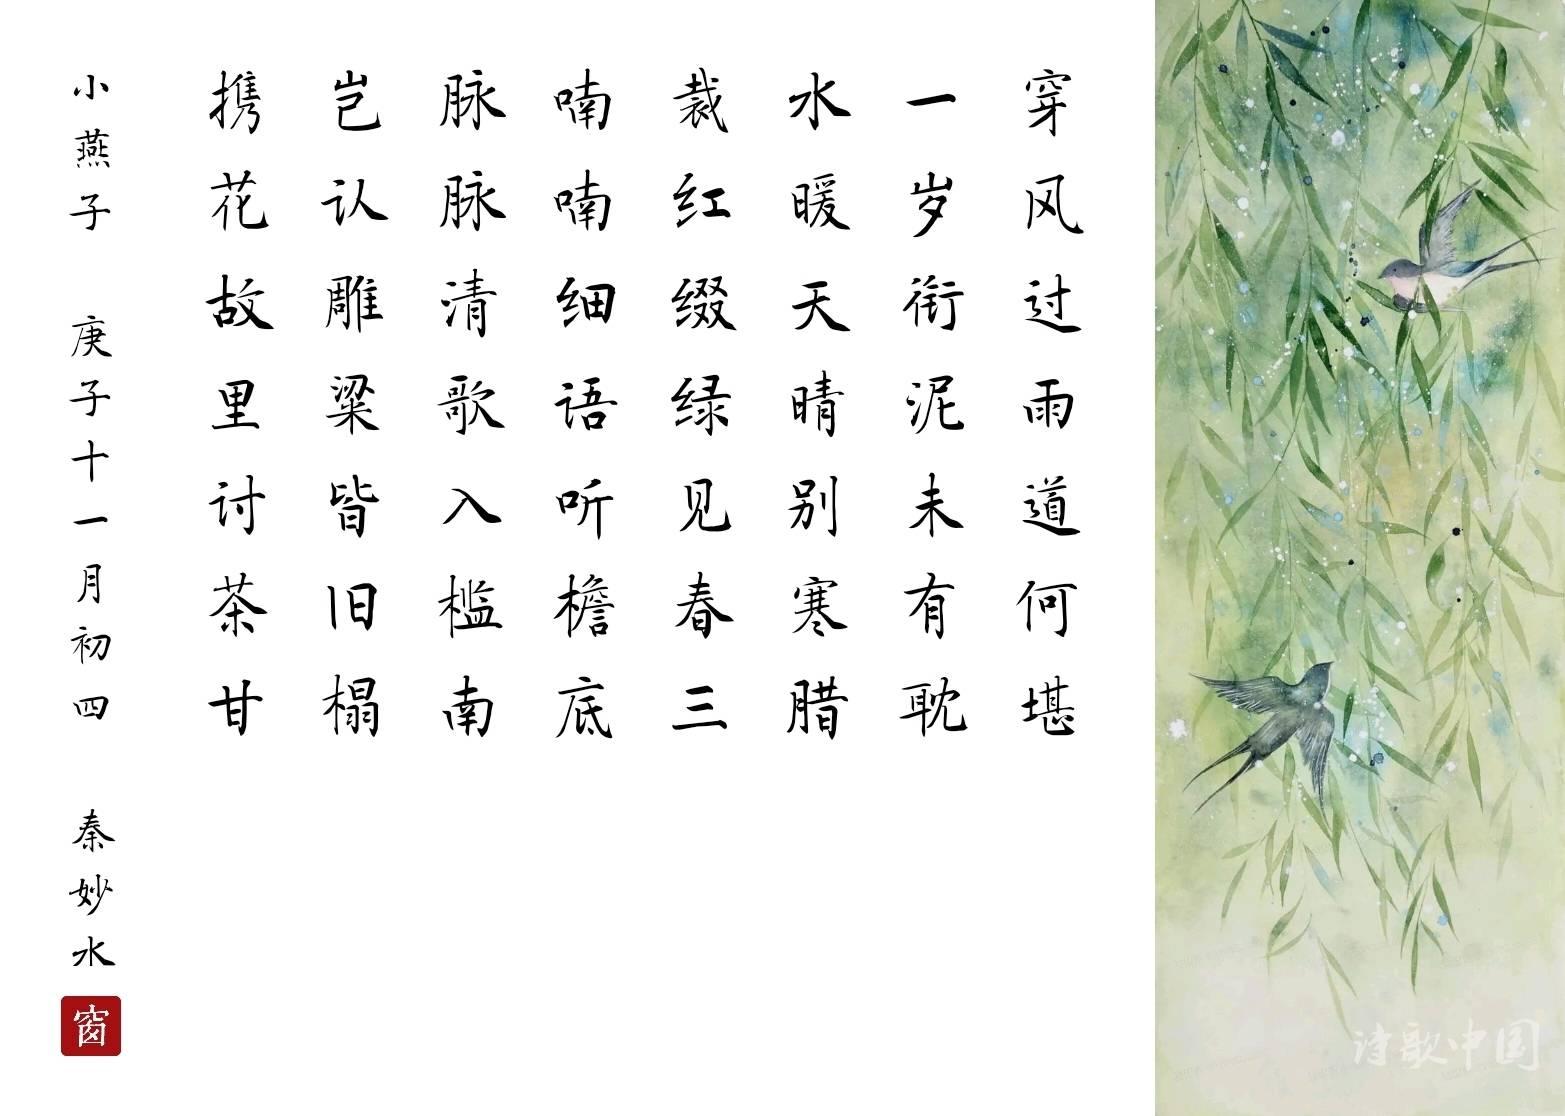 穿风过雨道何堪
一岁衔泥未有耽
水暖天晴别寒腊
裁红缀绿见春三
喃喃细语听檐底
脉脉清歌入槛南
岂认雕粱皆旧榻
携花故里讨茶甘
小燕子 庚子十一月初四 秦妙水
窗
诗歌中国